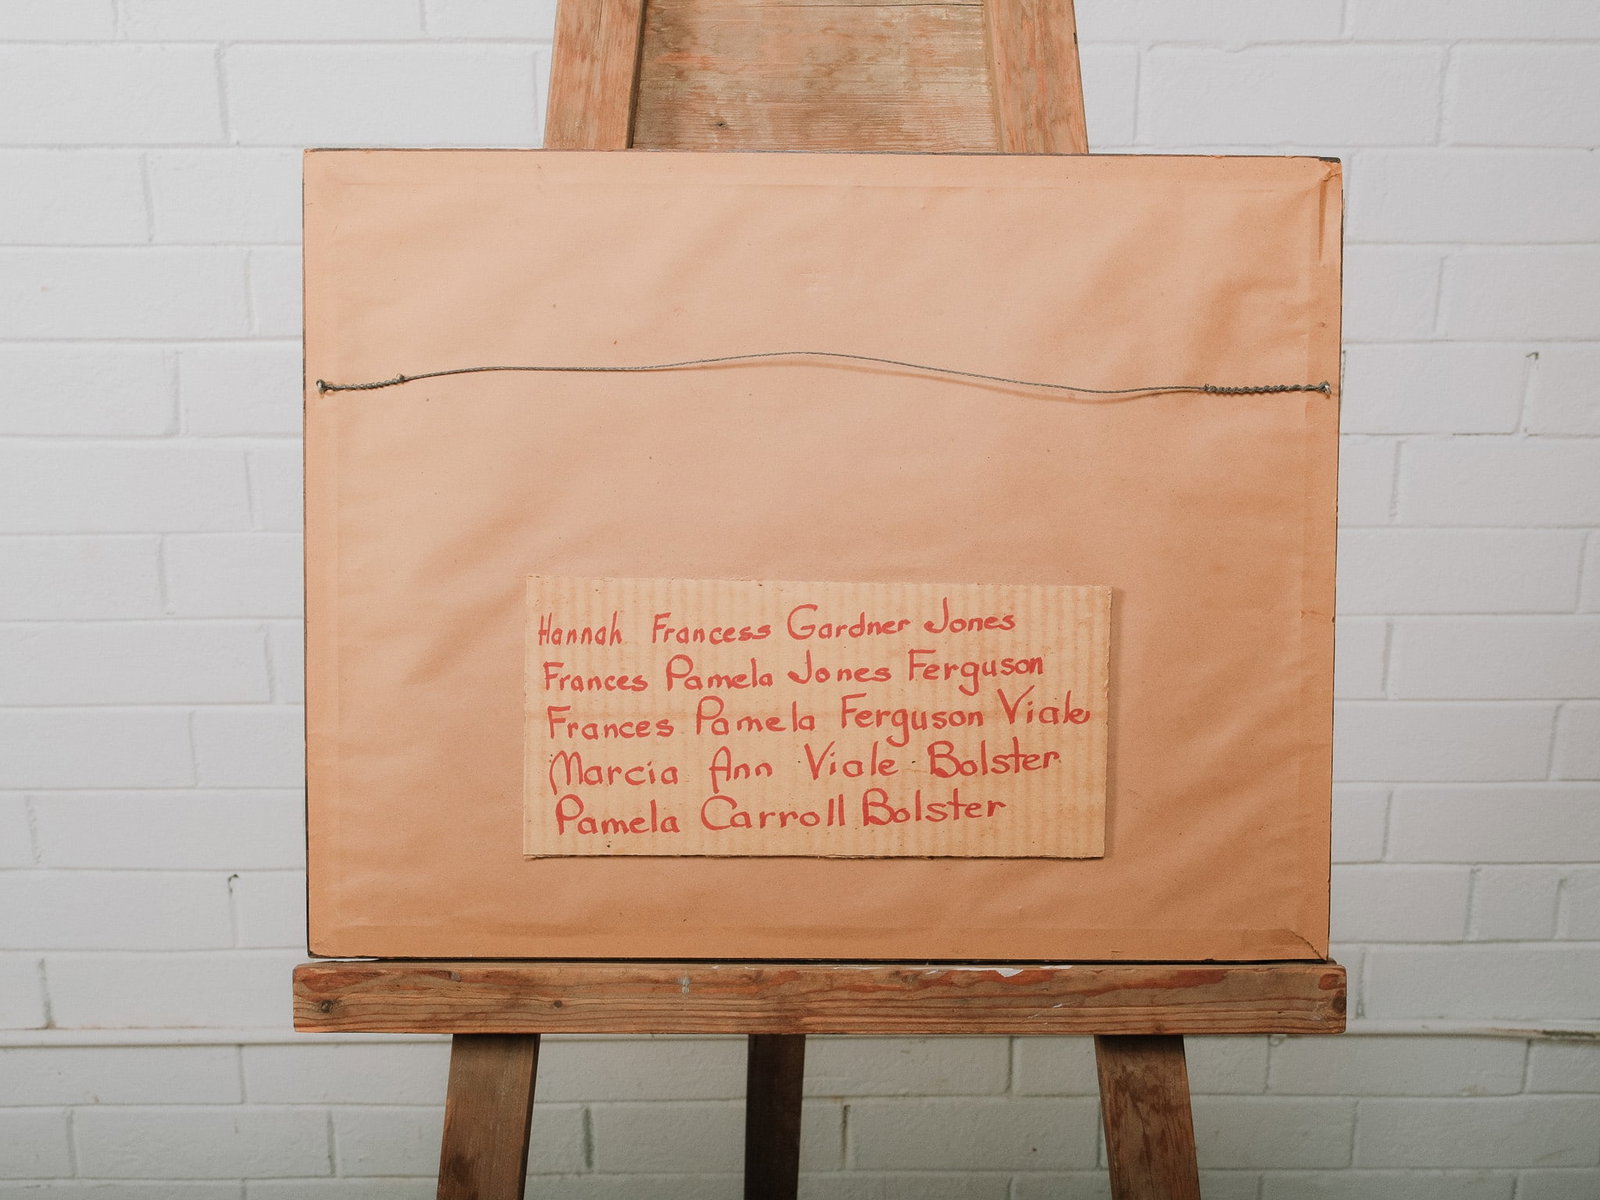 Hannah Francess Gardner Jones
Frances Pamela Jones Ferguson
Frances Pamela Ferguson Viale
Marcia Ann Viale Bolster
Pamela Carroll Bolster